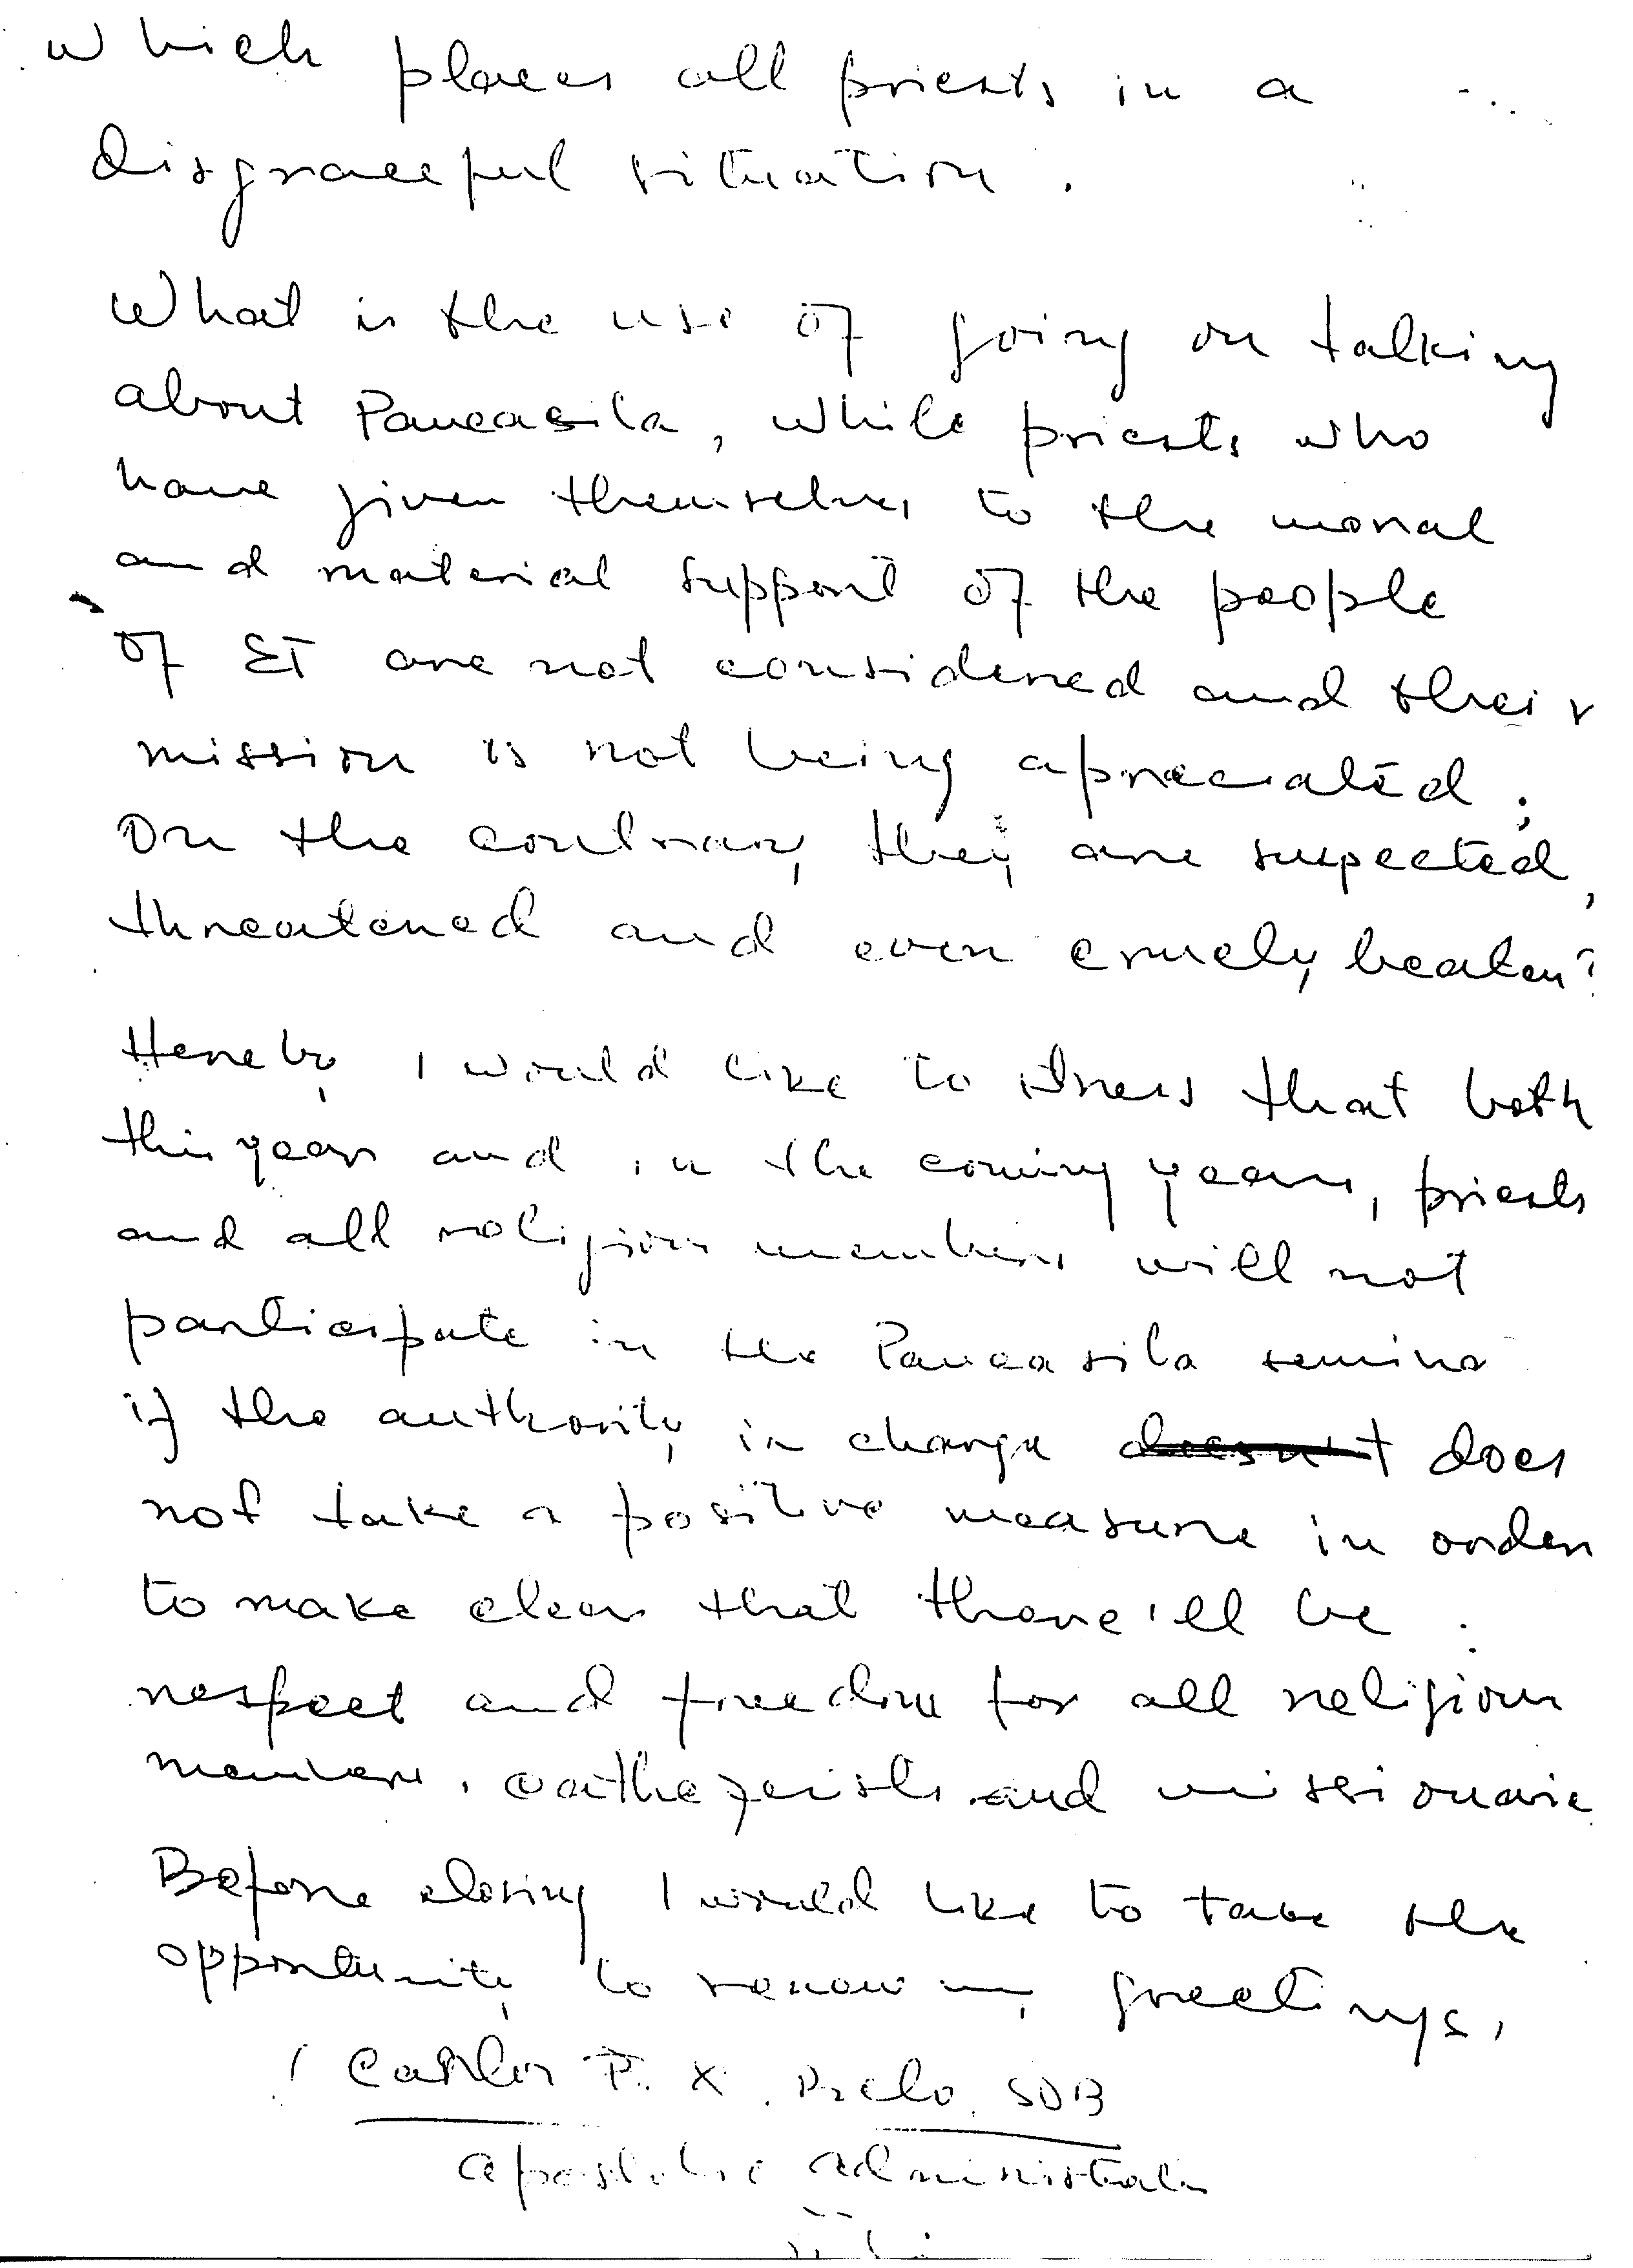 which places all priests in a
disgraceful situation.
What is the use of going on talking
about Pancasila, while priests who
have given themselves to the moral
and material support of the people
of ET are not considered and their
mission is not being apreciated;
On the contrary, they are suspected,
threatened and even cruely beaten?
Hereby I would like to stress that both
this year and in the coming years, priests
and all religious members will not
participate in the Pancasila semina
if the authority in charge doesn't does
not take a positive measure in order
to make clear that there'll be
respect and freedom for all religious
members, and missionarie
Before closing I would like to take the
opportunity to renew my greetings,
Carlos F. X. Belo, SDB
apostolic administrator